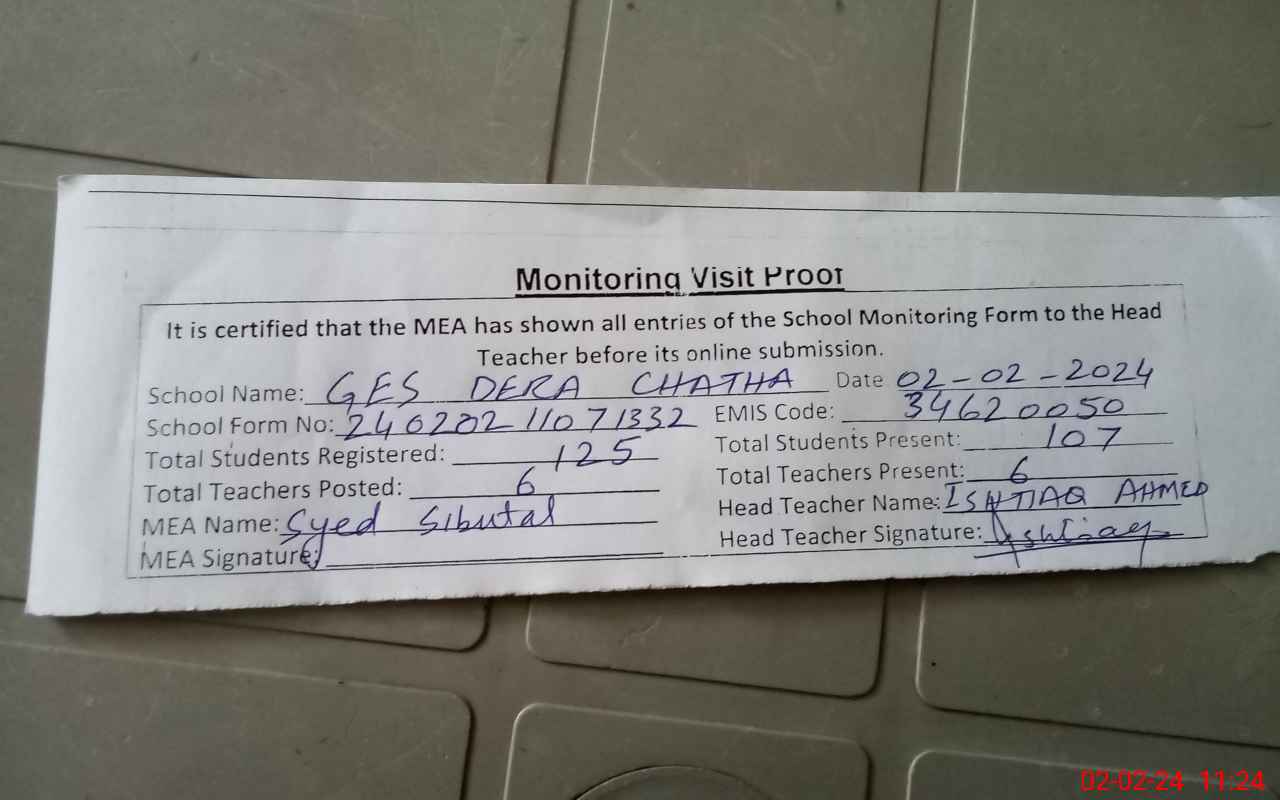 Monitoring Visit Proof
It is certified that the MEA has shown all entries of the School Monitoring Form to the Head
Teacher before its online submission.
School Name: GES DERA CHATHA Date 02-02-2024
School Form No: 24020211071332 EMIS Code: 34620050
Total Students Registered: 125 Total Students Present: 107
Total Teachers Posted: 6 Total Teachers Present: 6
MEA Name: Syed Sibutal Head Teacher Name: ISHTIAQ AHMED
MEA Signature: Head Teacher Signature: Ishtiaq
02-02-24 11:24